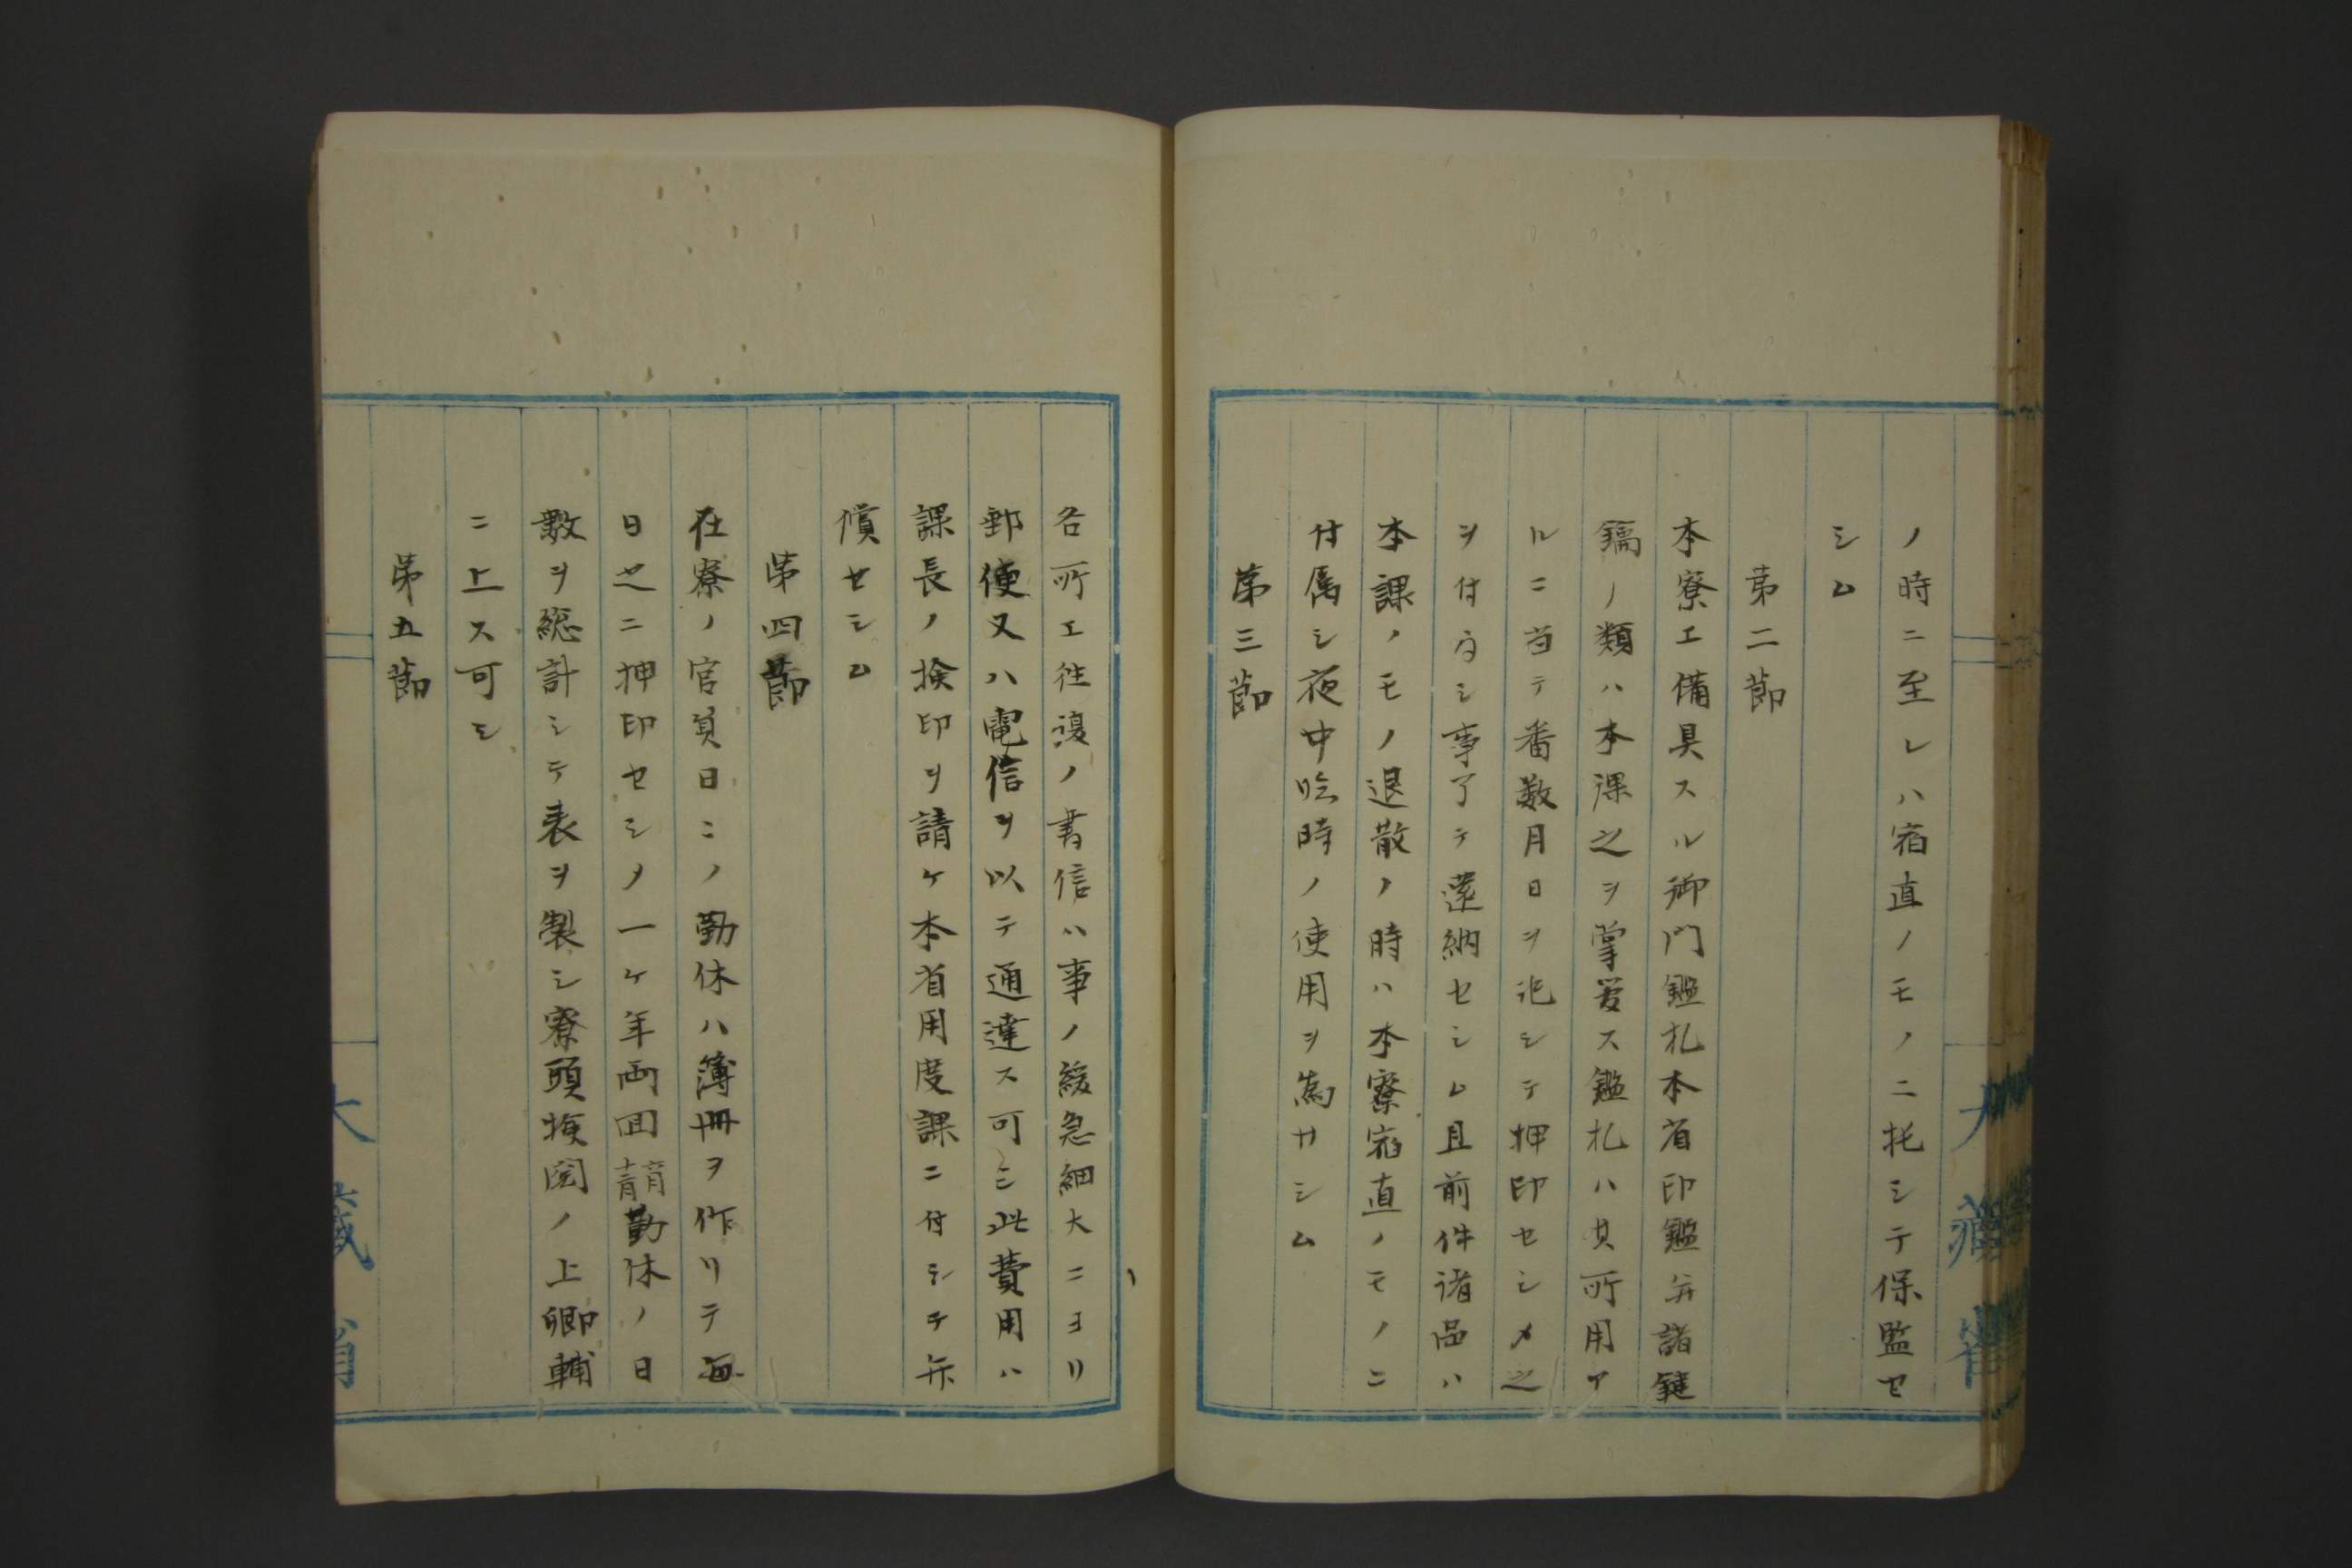 ノ時ニ至レハ宿直ノモノニ托シテ保監セ
シム
第二節
本寮エ備具スル御門鑑札本省印鑑并諸鍵
鑰ノ類ハ本課之ヲ掌管ス鑑札ハ其所用ア
ルニ当テ番数月日ヲ記シテ押印セシメ之
ヲ付与シ事了テ還納セシム且前件諸品ハ
本課ノモノ退散ノ時ハ本寮宿直ノモノニ
付属シ夜中臨時ノ使用ヲ為サシム
第三節
各所エ往復ノ書信ハ事ノ緩急細大ニヨリ
郵便又ハ電信ヲ以テ通達ス可シ此費用ハ
課長ノ検印ヲ請ケ本省用度課ニ付シテ弁
償セシム
第四節
在寮ノ官員日々ノ勤休ハ簿冊ヲ作リテ毎
日之ニ押印セシメ一ケ年両回勤休ノ日
数ヲ総計シテ表ヲ製シ寮頭検閲ノ上卿輔
ニ上ス可シ
第五節
大蔵省
大蔵省